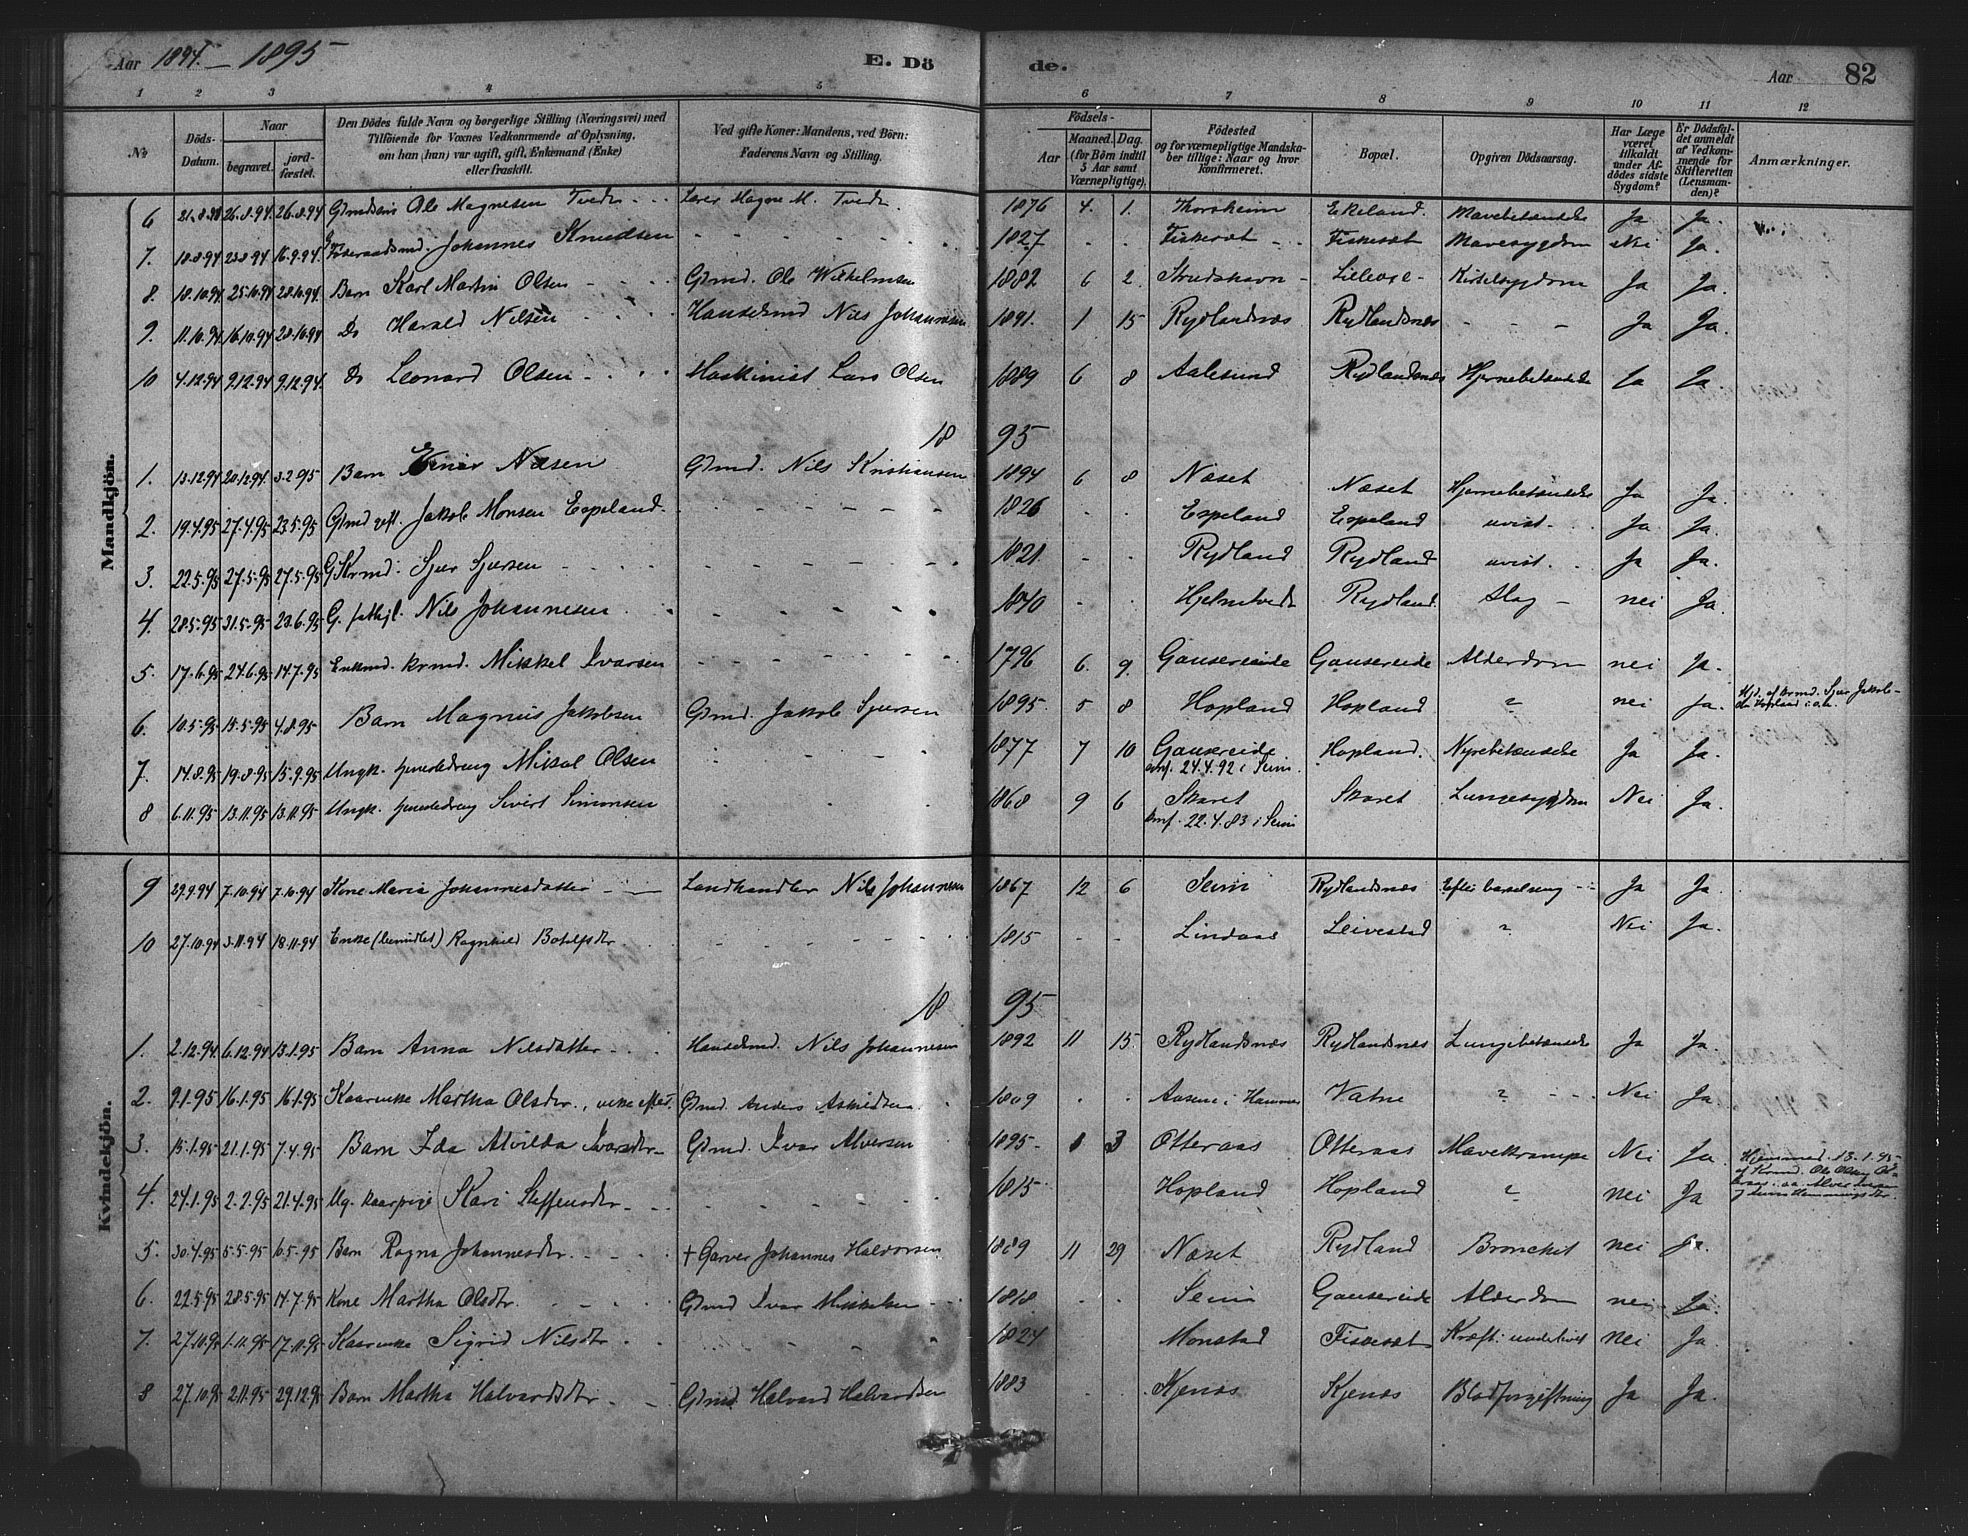 Aar 1894. - 1895 E. Dö de. Aar 82
1 2 3 4 5 6 7 8 9 10 11 12
No
Döds-Datum.
Naar
begravet.
jord-fæstet.
Den Dödes fulde Navn og borgerlige Stilling (Næringsvei) med
Tilföiende for Voxnes Vedkommende af Oplysning,
om han (hun) var ugift, gift, Enkemand (Enke)
eller fraskilt.
Ved gifte Koner: Mandens, ved Börn:
Faderens Navn og Stilling.
Födsels-
Aar
Maaned. Dag.
(for Börn indtil
5 Aar samt
Værnepligtige).
Födested
og for værnepligtige Mandska-
ber tillige: Naar og hvor
konfirmeret.
Bopæl.
Opgiven Dödsaarsag.
Har Læge
været
tilkaldt
under Af-
dödes sidste
Sygdom?
Er Dödsfal-
det anmeldt
af Vedkom-
mende for
Skifteretten
(Lensman-
den)?
Anmærkninger.
Mandkjön.
6 21.8.94 26.8.94 26.8.94 Gbmdsøn Ole Magnesen Tvedt Lærer Magne M. Tvedt 1876 4. 1. Thorsheim Ekeland. Mavebetændelse Ja Ja.
7. 18.8.94 23.8.94 16.9.94 Føderaadsmd. Johannes Knudsen 1827 Fiskesæt Fiskesæt Mavesygdom Nei Ja.
8 18.10.94 25.10.94 28.10.94 Barn Karl Martin Olsen Gbmd. Ole Wilhelmsen 1882 6 2. Strudshavn Lilleoxe Kirtelsygdom Ja Ja.
9. 11.10.94 16.10.94 28.10.94 Do Harald Nilsen Handelsmd Nils Johannesen 1891. 1 15 Rydlandsnæs Rydlandsnæs - - - Ja Ja.
10 4.12.94 9.12.94 9.12.94. Do Leonard Olsen Maskinist Lars Olsen 1889 6 8 Aalesund Rydlandsnæs Hjernebetændelse Ja Ja.
18 95
1. 13.12.94 20.12.94. 3.2.95 Barn Einar Nilsen Gbmd. Nils Kristiansen 1894 6 8 Næset Næset Hjernebetændelse Ja Ja.
2. 19.4.95 27.4.95 23.5.95 Gbmd gift. Jakob Monsen Espeland 1826 Espeland Espeland uvist. Ja Ja.
3. 22.5.95 27.5.95 27.5.95 G Krmd. Sjur Sjursen 1821. Rydland Rydland uvist. Ja Ja.
4. 28.5.95 31.5.95 23.6.95 G. fathjl. Nils Johannesen 1840 Hjelmtvedt Rydland. Slag nei Ja.
5. 17.6.95 24.6.95 14.7.95 Enkmd. krmd. Mikkel Ivarsen 1796 6. 9. Gausereide Gausereide Alderdom nei Ja.
6. 10.5.95 15.5.95 4.8.95 Barn Magnus Jakobsen Gbmd. Jakob Sjursen 1895. 5 8 Hopland Hopland ? nei Ja. Hjd. af krmd. Sjur Jakob-
sen Hopland
7. 14.8.95 19.8.95 15.9.95 Ungk. tjenestedreng Mikal Olsen 1877 7 10 Gausereide Hopland. Nyrebetændelse Ja Ja.
conf. 24.4.92 i Seim.
8 6.11.95 13.11.95 13.11.95 Ungk. tjenestedreng Sivert Simonsen 1868 9 6 Skaret Skaret Lungesygdom Nei Ja.
conf. 22.4.83 i Seim
Kvindekjön.
9 29.9.94 7.10.94 7.10.94 Kone Maria Johannesdatter Landhandler Nils Johannesen 1867 12 6 Seim Rydlandsnæs Efter barselseng Ja Ja.
10 27.10.94 3.11.94 18.11.94 Enke (bemidlet) Ragnhild Botolfsdtr 1815 Lindaas Leivestad ? Nei Ja.
18 95
1. 2.12.94. 6.12.94 13.1.95 Barn Anna Nilsdatter Handelsmd. Nils Johannesen 1892 11 15. Rydlandsnæs Rydlandsnæs Lungebetændelse Ja Ja
2. 9.1.95 16.1.95 16.1.95 Kaarenke Martha Olsdtr., enke efter Gbmd. Anders Askildsen 1809 Aasene i Hammer Vatne ? Nei Ja
3. 15.1.95 21.1.95 7.4.95 Barn Ida Alvilda Ivarsdtr Gbmd. Ivar Alversen 1895 1 3 Otteraas Otteraas Mavekrampe Nei Ja Hjemmed. 13.1.95
af Krmd. Ole Olsen
4. 24.1.95 2.2.95 21.4.95 Ug. kaarpige Kari Steffensdtr 1815 Hopland Hopland ? nei Ja
5. 30.4.95 5.5.95 16.5.95 Barn Ragna Johannesdtr. + Garver Johannes Halvorsen 1889 11 29 Næset Rydland Bronchit nei Ja.
6. 22.5.95 28.5.95 14.7.95 Kone Martha Olsdtr. Gbmd Ivar Mikkelsen 1818 Seim Gausereide Alderdom nei Ja.
7. 27.10.95 1.11.95 17.11.95 Kaarenke Sigrid Nilsdtr 1824 Monstad Fiskesæt Kræft i underlivet nei Ja
8 27.10.95 2.11.95 29.12.95 Barn Martha Halvardsdtr Gbmd. Halvard Halvardsen 1883 Kjenæs Kjenæs Blodforgiftning Ja Ja.